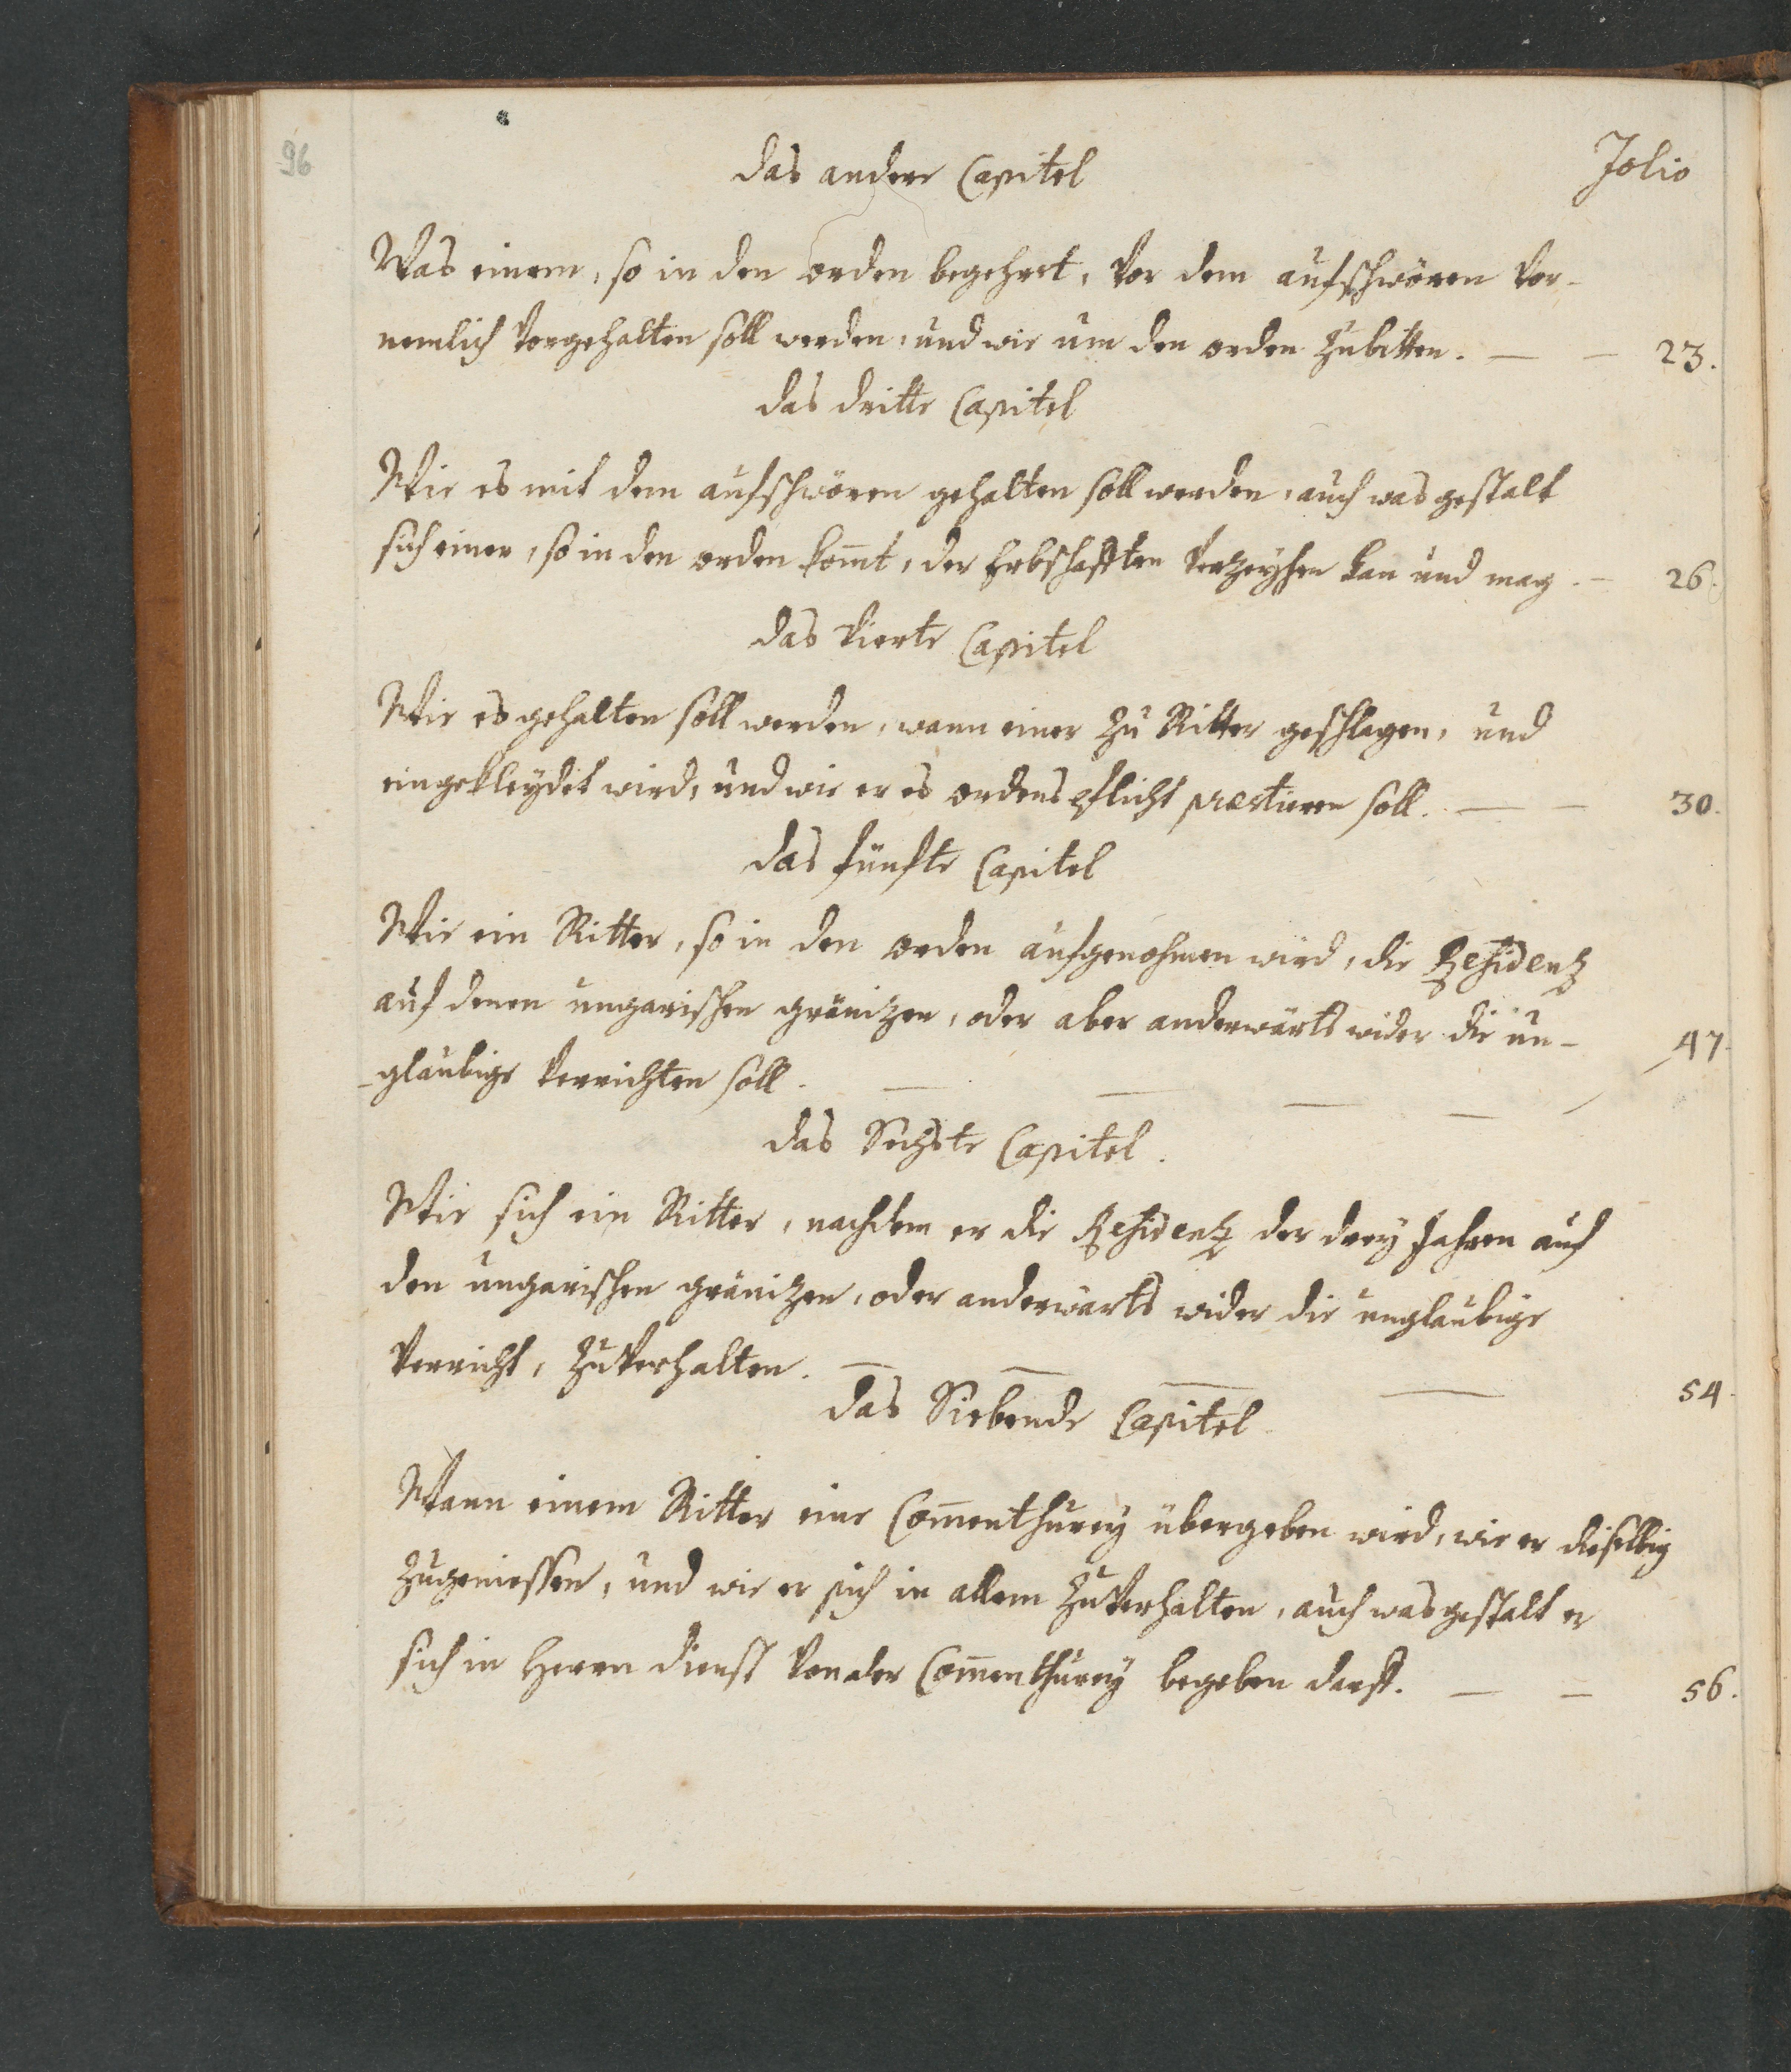 96
das andere Capitel
Folio
Was einem, so in den orden begehret, vor dem aufschwören vor-
nemlich vorgehalten soll werden, und wie um den orden zubitten. — — 23.
das dritte Capitel
Wie es mit dem aufschwören gehalten soll werden, auch was gestalt
sich einer, so in den orden kom̄t, der Erbschafften verzeyhen kan und mag. — 26.
das vierte Capitel
Wie es gehalten soll werden, wann einer zu Ritter geschlagen, und
eingekleydet wird, und wie er es ordens pflicht præstiren soll. — — 30.
das fünfte Capitel
Wie ein Ritter, so in den orden aufgenohmen wird, die Residenz
auf denen ungarischen gränizen, oder aber anderwärts wider die un-
-glaubige verrichten soll. — — — — — 47.
das Sechste Capitel.
Wie sich ein Ritter, nachdem er die Residenz der drey Jahren auf
den ungarischen gränizen, oder anderwärts wider die unglaubige
verricht, zuverhalten. — — — — 54.
das Siebende Capitel
Wann einem Ritter eine Com̄enthurey übergeben wird, wie er dieselbig
zugeniessen, und wie er sich in allem zuverhalten, auch was gestalt er
sich in Herrn dienst von der Com̄enthurey begeben darff. — — 56.